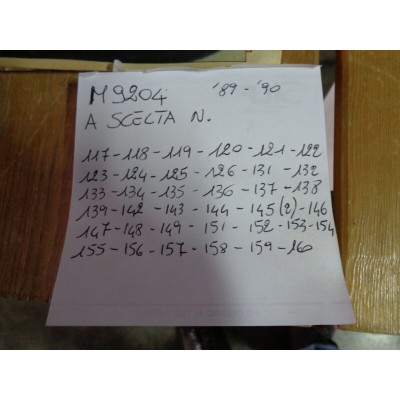 M9204 '89-'90
A SCELTA N.
117-118-119-120-121-122
123-124-125-126-131-132
133-134-135-136-137-138
139-142-143-144-145(2)-146
147-148-149-151-152-153-154
155-156-157-158-159-160